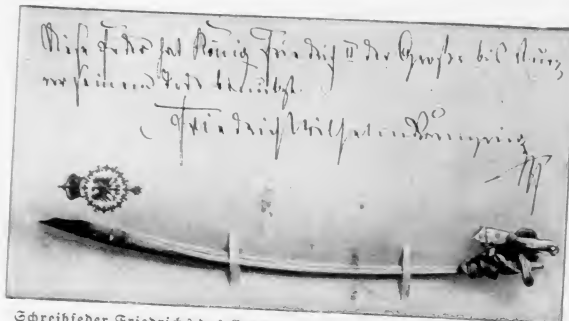 Diese Feder hat König Friedrich II der Große bis kurz
vor seinem Tode benützt.
Friedrich Wilhelm Kronprinz
Schreibfeder Friedrichs